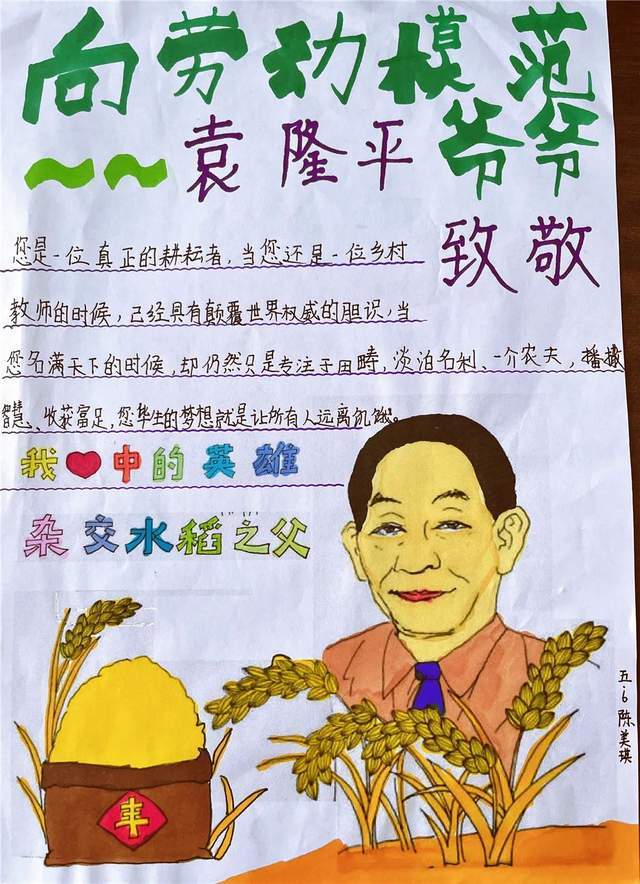 向劳动模范
~~袁隆平爷爷
致敬
您是一位真正的耕耘者,当您还是一位乡村
教师的时候,已经具有颠覆世界权威的胆识,当
您名满天下的时候,却仍然只是专注于田畴,淡泊名利、一介农夫,播撒
智慧、收获富足,您毕生的梦想就是让所有人远离饥饿。
我❤中的英雄
杂交水稻之父
丰
五.6陈美琪